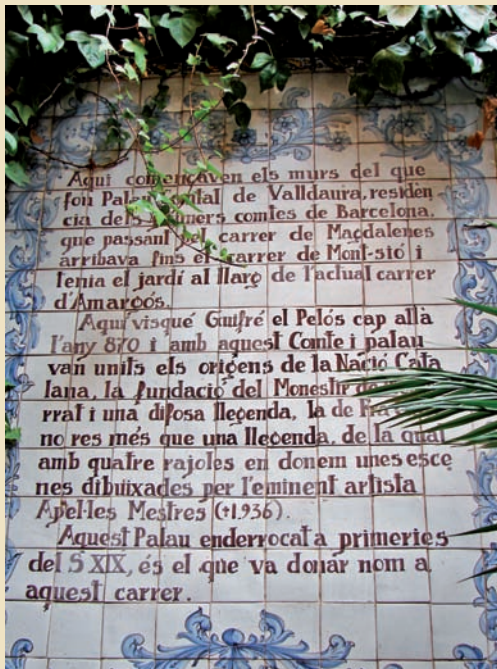 Aquí començaven els murs del que
fou Palau Comtal de Valldaura, residèn
cia dels primers comtes de Barcelona.
que passant pel carrer de Magdalenes
arribava fins el carrer de Mont-sió i
tenia el jardí al llarg de l'actual carrer
d'Amargós.
Aquí visqué Guifré el Pelós cap allà
l'any 870 i amb aquest Comte i palau
van units els orígens de la Nació Cata
lana, la fundació del Monestir de
rrat i una difosa llegenda, la de
no res més que una llegenda, de la qual
amb quatre rajoles en donem unes esce
nes dibuixades per l'eminent artista
Apel·les Mestres (†1.936).
Aquest Palau enderrocat a primeries
del S XIX, és el que va donar nom a
aquest carrer.